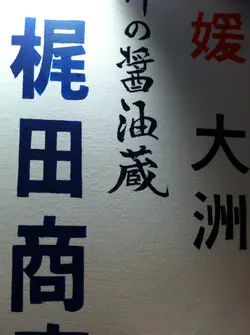 媛
大洲
の醤油蔵
梶田商